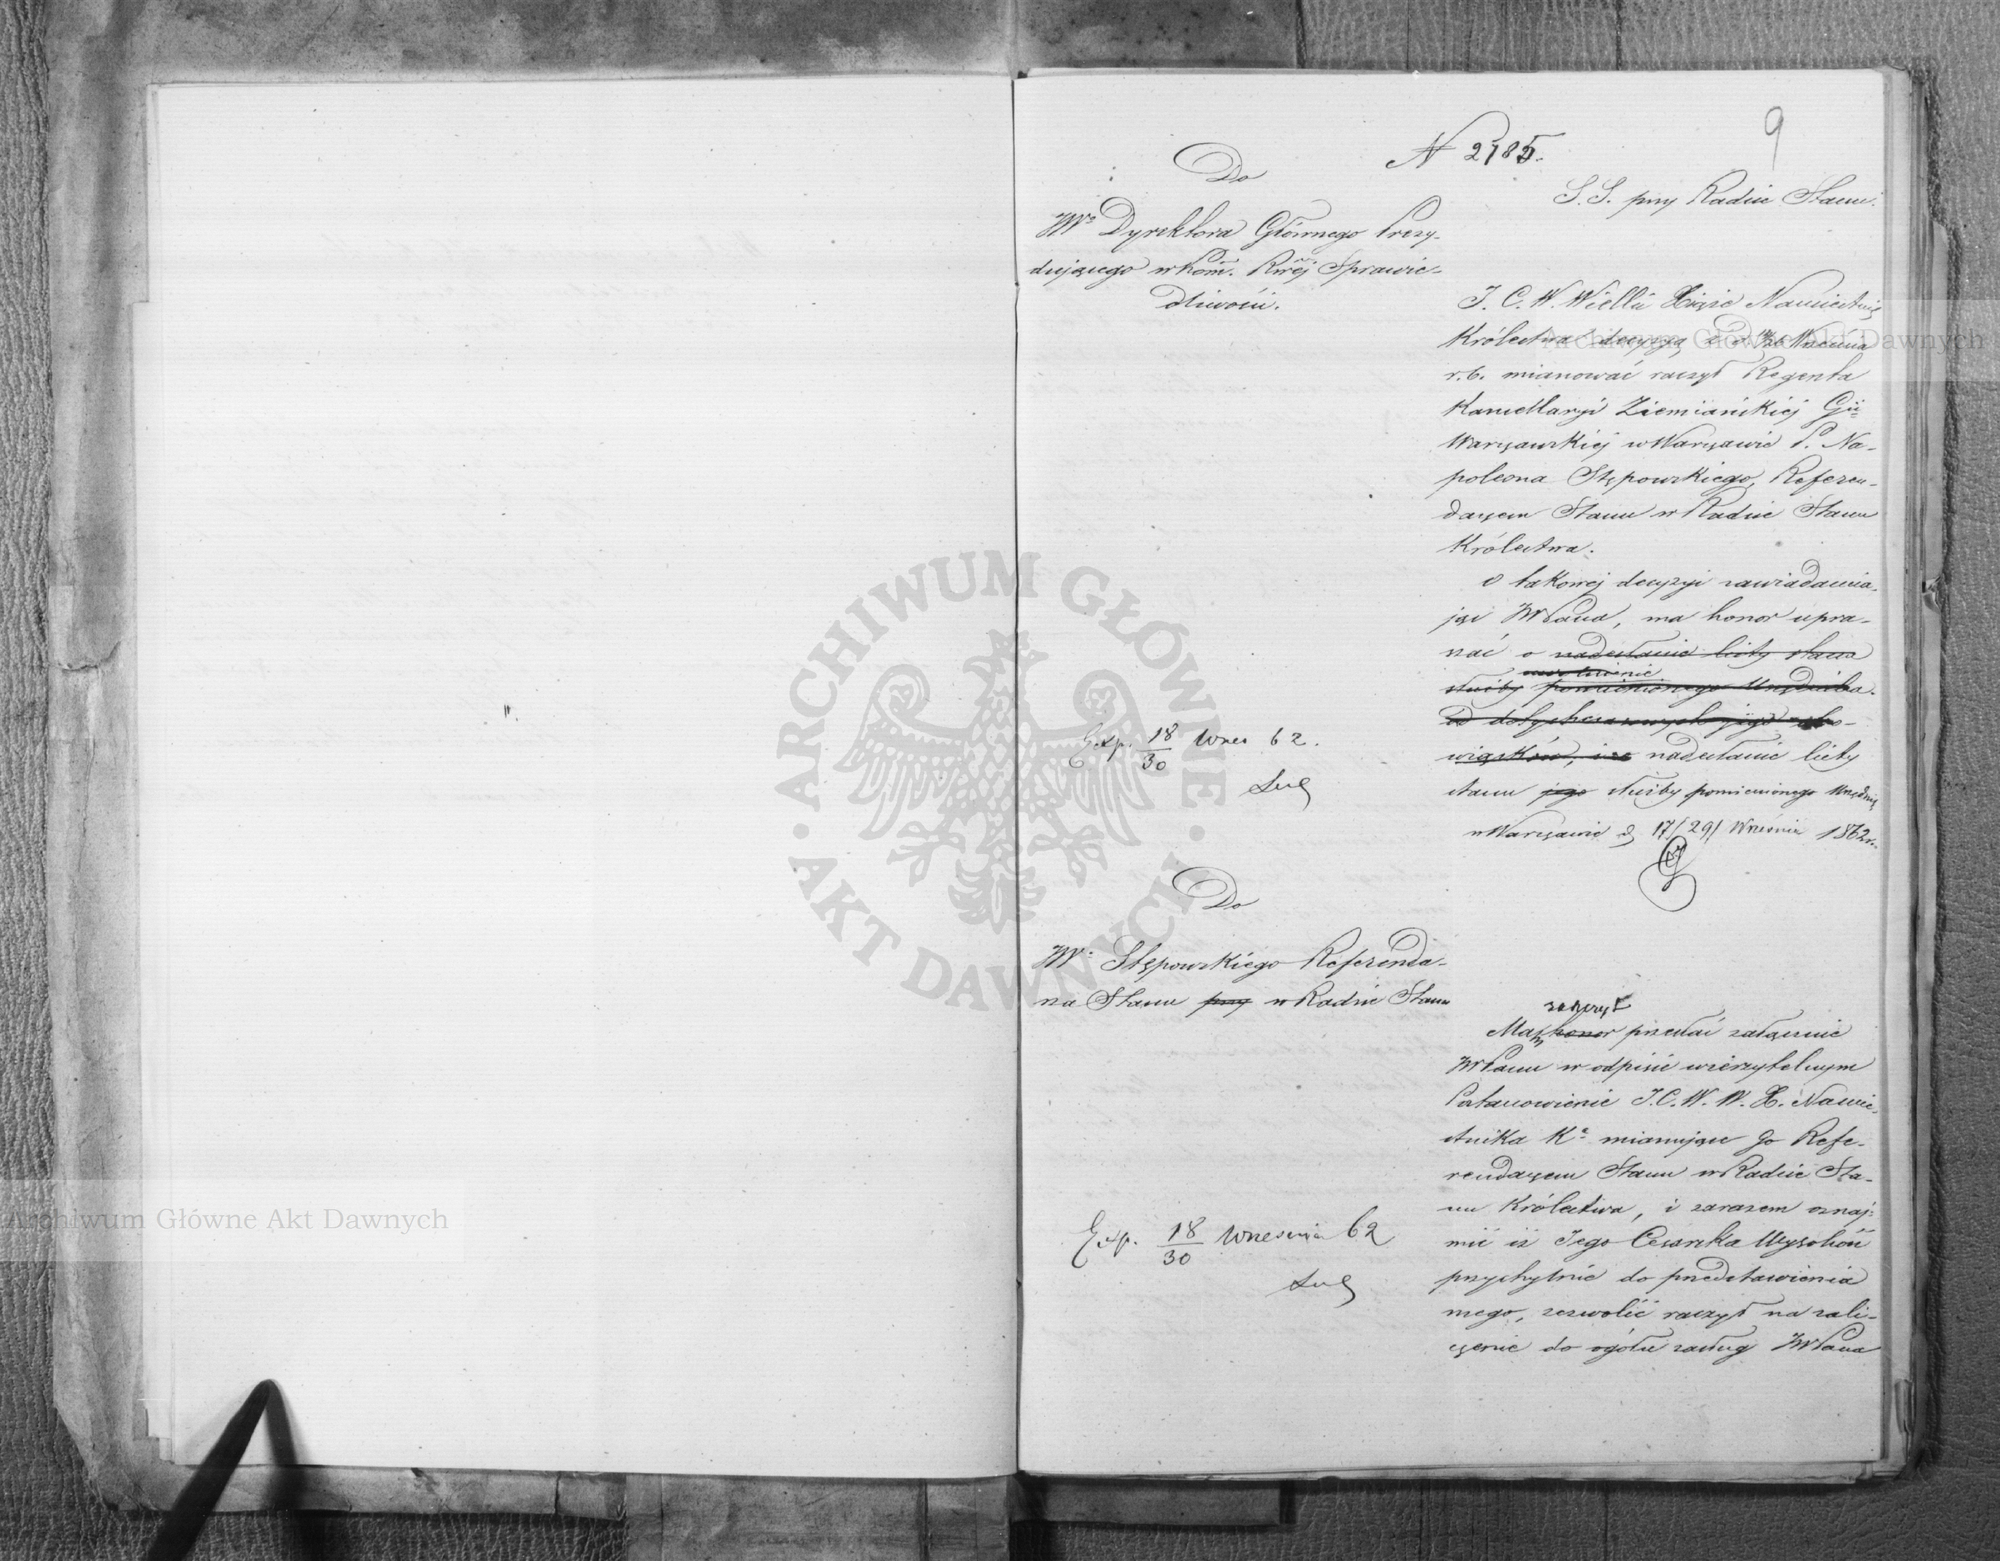 9
N 2785.
S. S. przy Radzie Stanu.
Do
JWo Dyrektora Głównego Prezy-
dującego w Kom. Rwéj Sprawie-
dliwości.
J. C. W. Wielki Xiąże Namiestnik
Królestwa decyzyą z d. Września
r. b. mianować raczył Regenta
Kancellaryi Ziemiańskiéj Gu
Warszawskiéj w Warszawie P. Na-
poleona Stępowskiego, Referen-
darzem Stanu w Radzie Stanu
Królestwa.
O takowéj decyzyi zawiadamia-
jąc JWPana, ma honor upra-
szać o nadesłanie listy stanu
uwolnienie
służby pomienionego Urzędnika
od dotychczasowych jego obo-
wiązków, i o nadesłanie listy
stanu jego służby pomienionego Urzędnik
w Warszawie d. 17/29/ Września 1862 r.
Exp. 18/30 Wrześ 62.
Do
JW. Stępowskiego Referenda-
rza Stanu przy w Radzie Stanu
zaszczyt
Mam honor przesłać załącznie
JWPanu w odpisie wierzytelnym
Postanowienie J. C. W. W. X. Namie-
stnika Ka mianujące Go Refe-
rendarzem Stanu w Radzie Sta-
nu Królestwa, i zarazem oznaj-
mić iż Jego Cesarska Wysokość
przychylnie do przedstawienia
mego, zezwolić raczył na zali-
czenie do ogółu zasług JWPana
Exp. 18/30 Września 62
Archiwum Główne Akt Dawnych
Archiwum Główne Akt Dawnych
ARCHIWUM GŁÓWNE · AKT DAWNYCH ·